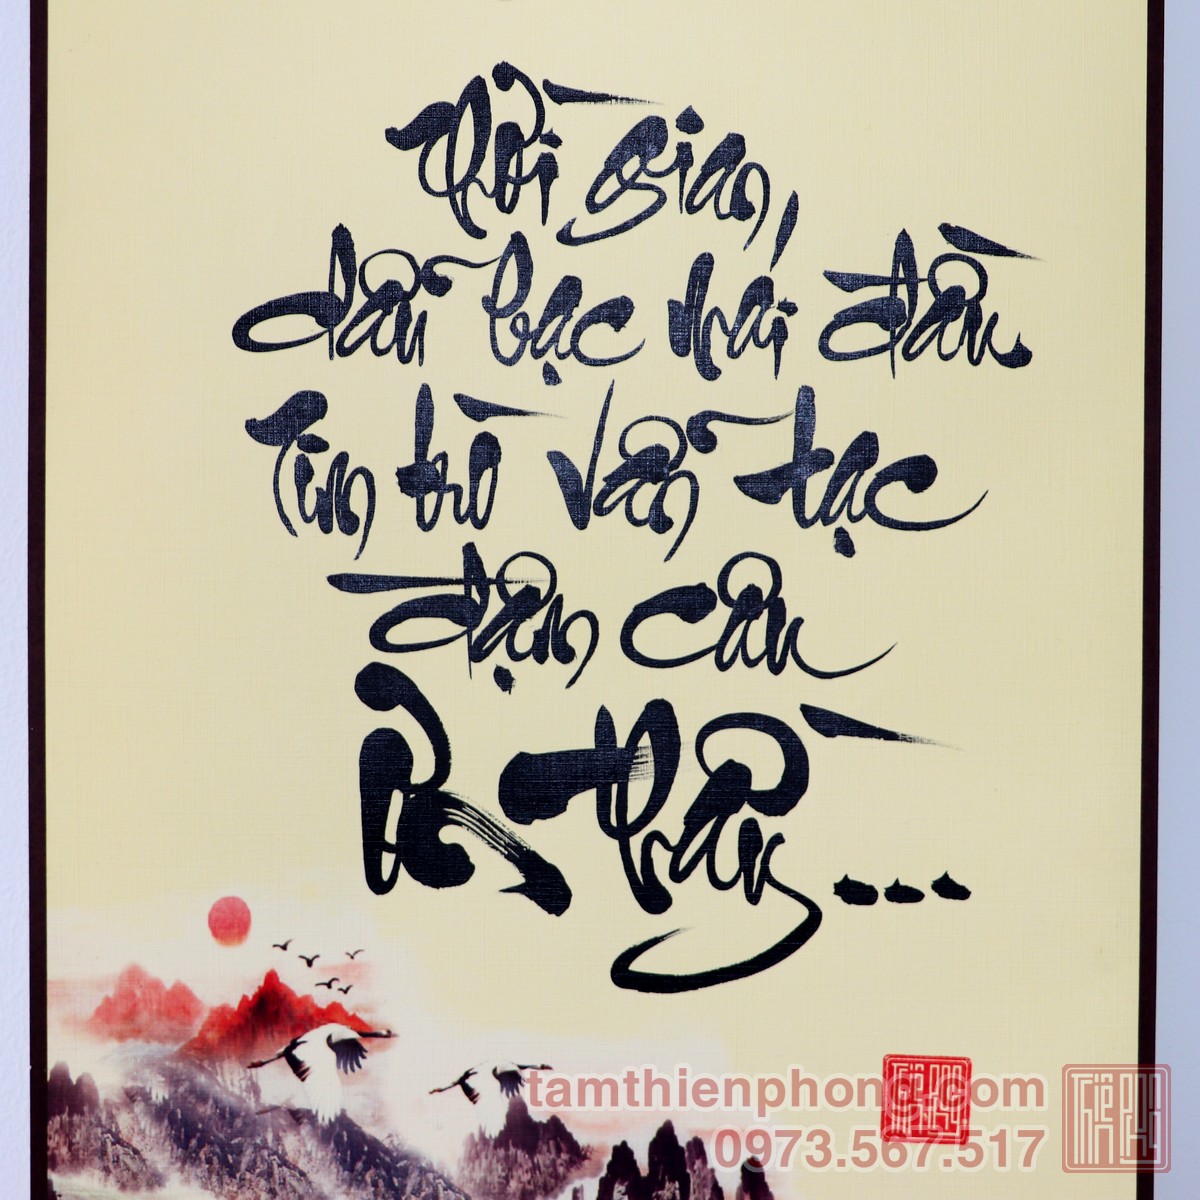 Thời gian,
dẫu bạc mái đầu
Tim trò vẫn tạc
đậm câu
Ơn thầy...
tamthienphong.com
0973.567.517